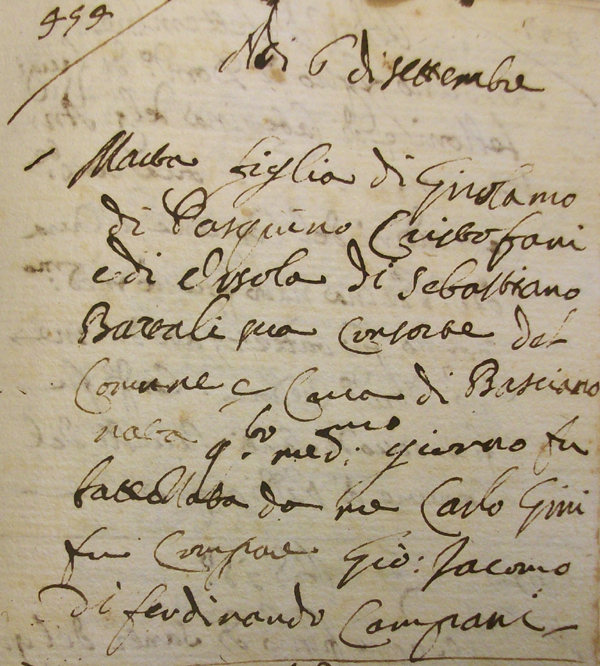 454
Adi 6 di settembre
Marta figlia di Girolamo
di Pasquino Cristofani
e di Orsola di Sebastiano
Bartali sua Consorte del
Comune e Cura di Basciano
nata q.to med.mo giorno fu
battezzata da me Carlo Gini
fu Compare Gio: Jacomo
di ferdinando Campani